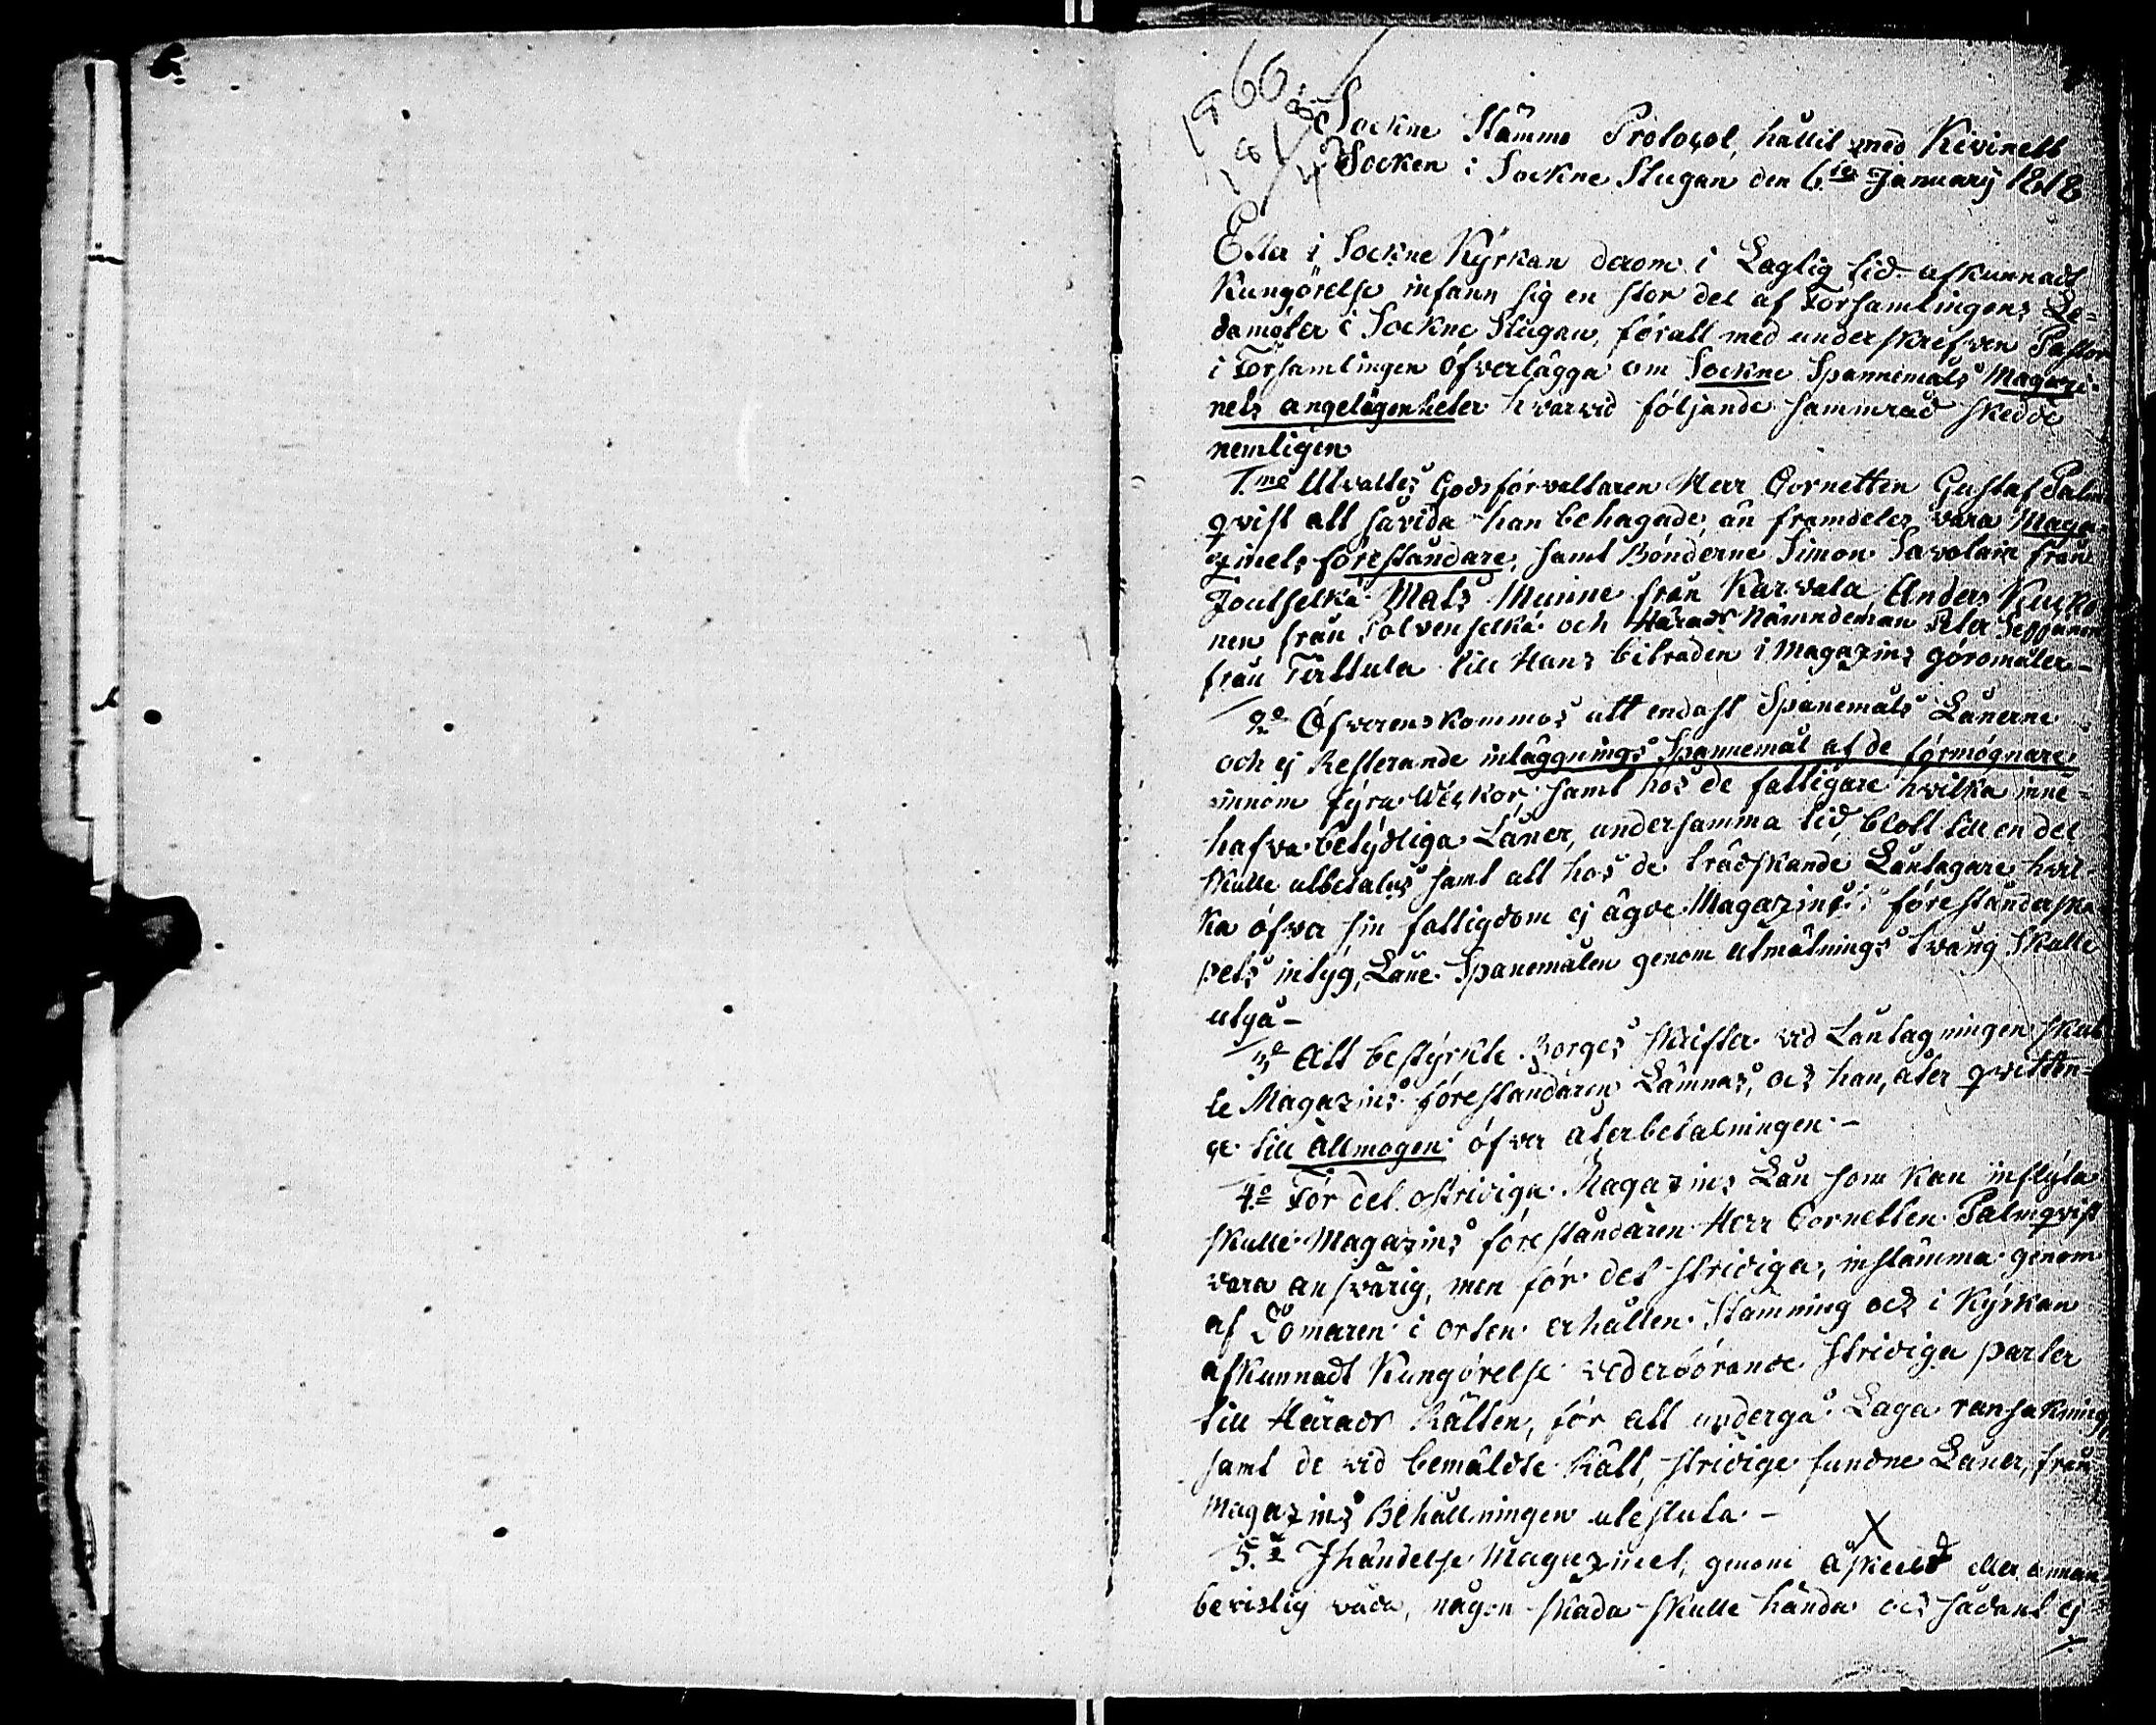 1866
1818
Sockne Stämmo Protocol, hållit med Kivinebb
Socken i Sockne Stugan den 6te January 1818
Efter i Sockne Kyrkan derom i Laglig tid afkunnadt
Kungörelse infann sig en stor del af Församlingens Le-
damöter i Sockne Stugan, för att med underskrefven Pastor
i Församlingen öfverlägga om Sockne Spannemåls Magazi-
nets angelägenheter hvarvid följande samråd skedde
nemligen
1.mo Utvaltes Godsförvaltaren Herr Cornetten Gustaf Palm
qvist att såvida han behagade, än framdeles vara Maga-
zinets föreståndare, samt Bönderne Simon Savolain från
Joutselkä Mats Munne från Karvala Anders Kucko
nen från Polvenselkä och Härads Nämndeman Peter Seppänen
från Tirttula till Hans biträden i Magazins göromåler-
2o Öfverenskommos att endast Spanemåls Lånerne
och ej Resterande inläggnings Spannemål af de förmögnare
innom fyra Weckor, samt hos de fattigare hvilka inne-
hafva betydliga Låner, under samma tid, blott till en del
skulle utbetalas samt att hos de trädskande Låntagare hvil-
ka öfver sin fattigdom ej ägde Magazins föreståndarska
pets intyg, Låne Spanemålen genom utmätnings tvång skulle
utgå-
3o Att bestyrkte Borges skrifter vid Låntagningen skul
le Magazins föreståndaren Lämnas, och han, åter qvitten-
ce till Allmogen öfver återbetalningen.-
4o För det ostridiga Magazins Lån som kan inflyta
skulle Magazins föreståndaren Herr Cornetten Palmqvist
vara ansvarig, men för det stridiga, instämma genom
af Domaren i orten erhållen Stämning och i Kyrkan
afkunnadt Kungörelse vederbörande stridiga parter
till Härads Rätten, för att undergå Laga ransakning
samt de vid bemäldte Rätt, stridige fundne Låner, från
Magazins Behållningen utesluta.-
X
5.o I händelse Magazinet, genom åskeeld eller annan
bevislig våda, någon skada skulle hända och sådant ej